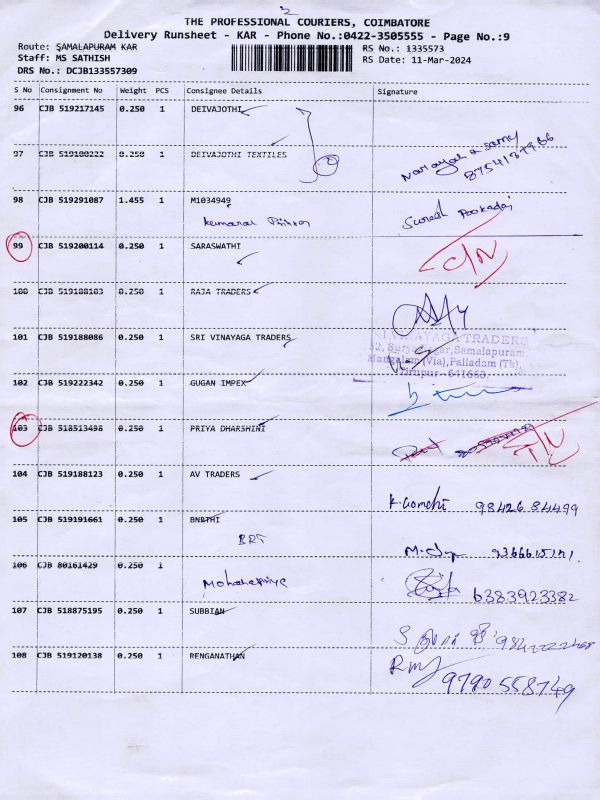 2
THE PROFESSIONAL COURIERS, COIMBATORE
Delivery Runsheet - KAR - Phone No.:0422-3505555 - Page No.:9
Route: SAMALAPURAM KAR
RS No.: 1335573
Staff: MS SATHISH
RS Date: 11-Mar-2024
DRS No.: DCJB133557309
S No Consignment No Weight PCS Consignee Details Signature
96 CJB 519217145 0.250 1 DEIVAJOTHI
97 CJB 519188222 0.250 1 DEIVAJOTHI TEXTILES
98 CJB 519291087 1.455 1 M1034949
Suresh
99 CJB 519200114 0.250 1 SARASWATHI
C/N
100 CJB 519188103 0.250 1 RAJA TRADERS
101 CJB 519188086 0.250 1 SRI VINAYAGA TRADERS
VINAYAGA TRADERS
Samalapuram,
Mangalam (Via), Palladam (Tk),
Tirupur - 641663.
102 CJB 519222342 0.250 1 GUGAN IMPEX
103 CJB 518513498 0.250 1 PRIYA DHARSHINI
104 CJB 519188123 0.250 1 AV TRADERS
K. Gomathi 98426 84499
105 CJB 519191661 0.250 1 BNRTHI
BRT
106 CJB 80161429 0.250 1
Mohanapriya
6383923382
107 CJB 518875195 0.250 1 SUBBIAN
108 CJB 519120138 0.250 1 RENGANATHAN
9790558749